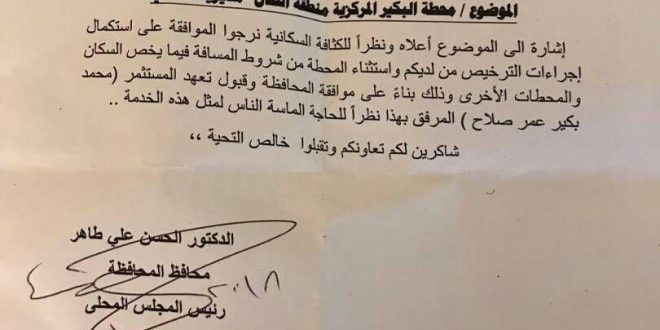 الموضوع / محطة البكير المركزية منطقة
إشارة الى الموضوع أعلاه ونظراً للكثافة السكانية نرجوا الموافقة على استكمال
إجراءات الترخيص من لديكم واستثناء المحطة من شروط المسافة فيما يخص السكان
والمحطات الأخرى وذلك بناءً على موافقة المحافظة وقبول تعهد المستثمر (محمد
بكير عمر صلاح ) المرفق بهذا نظراً للحاجة الماسة الناس لمثل هذه الخدمة ..
شاكرين لكم تعاونكم وتقبلوا خالص التحية ،،
الدكتور الحسن علي طاهر
محافظ المحافظة
رئيس المجلس المحلي
٢٠١٨